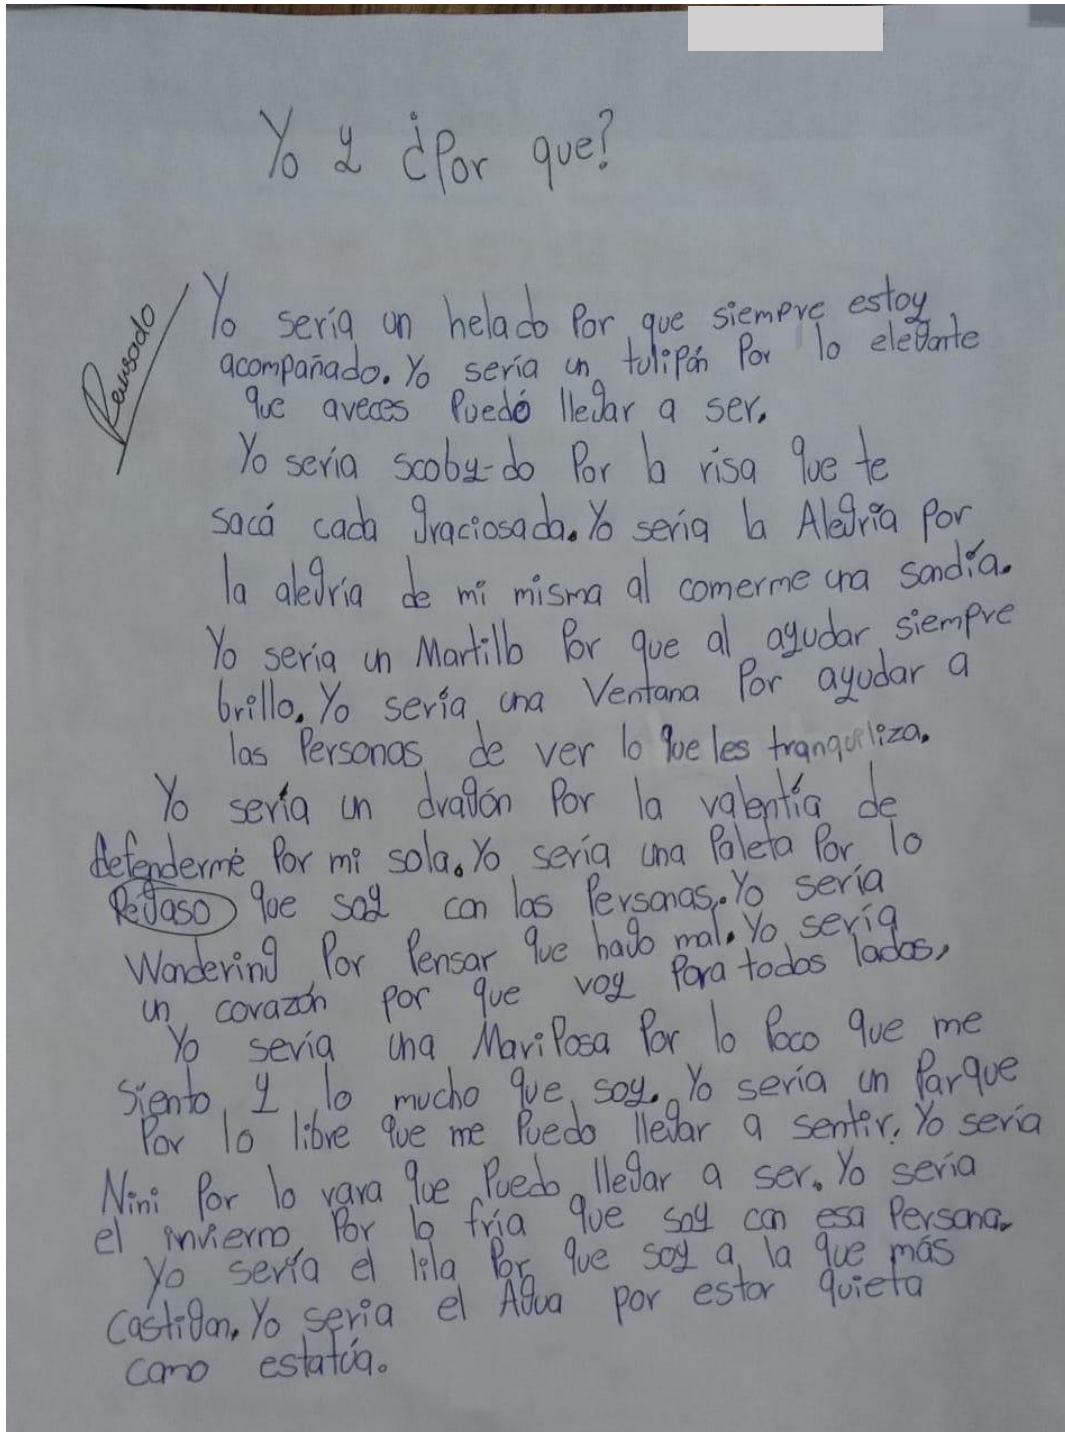 Yo y ¿Por que?
Revisado
Yo sería un helado Por que siempre estoy
acompañado. Yo sería un tulipán Por lo elegante
que aveces Puedó llegar a ser.
Yo sería scoby-do Por la risa que te
sacá cada graciosada. Yo sería la Alegría por
la alegría de mi misma al comerme una sandía.
Yo sería un Martillo Por que al ayudar siempre
brillo. Yo sería una Ventana Por ayudar a
las Personas de ver lo que les tranquiliza.
Yo sería un dragón Por la valentía de
defendermé Por mi sola. Yo sería una Paleta Por lo
Pegaso que soy con las Personas. Yo sería
Wondering Por Pensar que hago mal. Yo sería
un corazón por que voy Para todos lados,
Yo sería una Mariposa Por lo Poco que me
siento y lo mucho que soy. Yo sería un Parque
Por lo libre que me Puedo llegar a sentir. Yo sería
Nini Por lo rara que Puedo llegar a ser. Yo sería
el invierno Por lo fría que soy con esa Persona.
Yo sería el lila Por que soy a la que más
castigan. Yo seria el Agua por estar quieta
como estatúa.